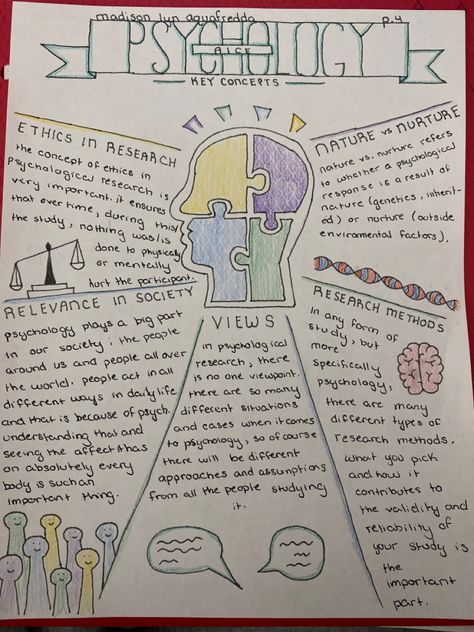 madison lyn aguafredda
p.4
PSYCHOLOGY
AICE
KEY CONCEPTS
ETHICS IN RESEARCH
the concept of ethics in
psychological research is
very important. it ensures
that over time, during this/
the study, nothing was/is
done to physically
or mentally
hurt the participant.
NATURE vs NURTURE
nature vs. nurture refers
to whether a psychological
response is a result of
nature (genetics, inherit-
ed) or nurture (outside
enviromental factors).
RELEVANCE IN SOCIETY
psychology plays a big part
in our society; the people
around us and people all over
the world. people act in all
different ways in daily life
and that is because of psych.
understanding that and
seeing the affect it has
on absolutely every
body is such an
important thing.
VIEWS
in psychological
research, there
is no one viewpoint.
there are so many
different situations
and cases when it comes
to psychology, so of course
there will be different
approaches and assumptions
from all the people studying
it.
RESEARCH METHODS
In any form of
study, but
more
specifically
psychology,
there are many
different types of
research methods.
what you pick
and how it
contributes to
the validity and
reliability of
your study is
the
important
part.